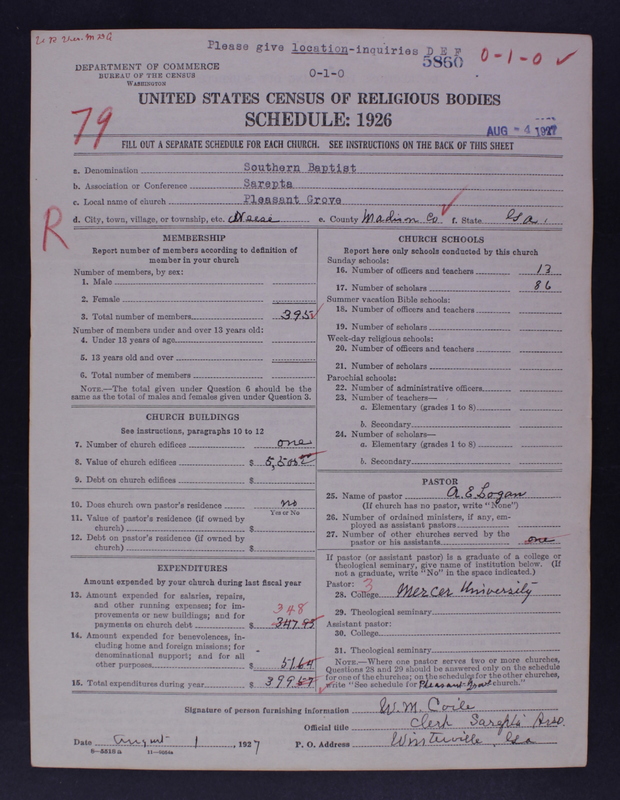 Please give location-inquiries D E F
5860
0-1-0 ✓
DEPARTMENT OF COMMERCE
BUREAU OF THE CENSUS
WASHINGTON
0-1-0
UNITED STATES CENSUS OF RELIGIOUS BODIES
SCHEDULE: 1926
79
AUG - 4 1927
FILL OUT A SEPARATE SCHEDULE FOR EACH CHURCH. SEE INSTRUCTIONS ON THE BACK OF THIS SHEET
a. Denomination Southern Baptist
b. Association or Conference Sarepta
c. Local name of church Pleasant Grove
d. City, town, village, or township, etc. Neese e. County Madison Co f. State Ga.
R
MEMBERSHIP
Report number of members according to definition of
member in your church
Number of members, by sex:
1. Male
2. Female
3. Total number of members 395
Number of members under and over 13 years old:
4. Under 13 years of age
5. 13 years old and over
6. Total number of members
NOTE.—The total given under Question 6 should be
same as the total of males and females given under Question 3.
CHURCH BUILDINGS
See instructions, paragraphs 10 to 12
7. Number of church edifices one
8. Value of church edifices $ 5,500
9. Debt on church edifices $
10. Does church own pastor's residence no
Yes or No
11. Value of pastor's residence (if owned by
church) $
12. Debt on pastor's residence (if owned by
church) $
EXPENDITURES
Amount expended by your church during last fiscal year
13. Amount expended for salaries, repairs,
and other running expenses; for im-
provements or new buildings; and for
348
payments on church debt $ 347.95
14. Amount expended for benevolences, in-
cluding home and foreign missions; for
denominational support; and for all
other purposes $ 51.64
15. Total expenditures during year $ 399.59
CHURCH SCHOOLS
Report here only schools conducted by this church
Sunday schools:
16. Number of officers and teachers 13
17. Number of scholars 86
Summer vacation Bible schools:
18. Number of officers and teachers
19. Number of scholars
Week-day religious schools:
20. Number of officers and teachers
21. Number of scholars
Parochial schools:
22. Number of administrative officers
23. Number of teachers—
a. Elementary (grades 1 to 8)
b. Secondary
24. Number of scholars—
a. Elementary (grades 1 to 8)
b. Secondary
PASTOR
25. Name of pastor A.E. Logan
(If church has no pastor, write "None")
26. Number of ordained ministers, if any, em-
ployed as assistant pastors
27. Number of other churches served by the
pastor or his assistants one
If pastor (or assistant pastor) is a graduate of a college or
theological seminary, give name of institution below. (If
not a graduate, write "No" in the space indicated.)
Pastor: 3
28. College Mercer University
29. Theological seminary
Assistant pastor:
30. College
31. Theological seminary
NOTE.—Where one pastor serves two or more churches,
Questions 28 and 29 should be answered only on the schedule
for one of the churches; on the schedules for the other churches,
write "See schedule for Pleasant Grove church."
Signature of person furnishing information W.M. Coile
Official title Clerk Sarepta Asso.
Date August 1, 1927 P. O. Address Winterville, Ga